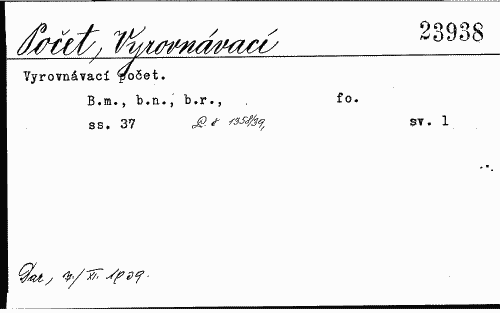 Počet, Vyrovnávací 23938
Vyrovnávací počet.
B.m., b.n., b.r., fo.
ss. 37 P. č 1358/39, sv. 1
Dar, 7./XI. 1939.